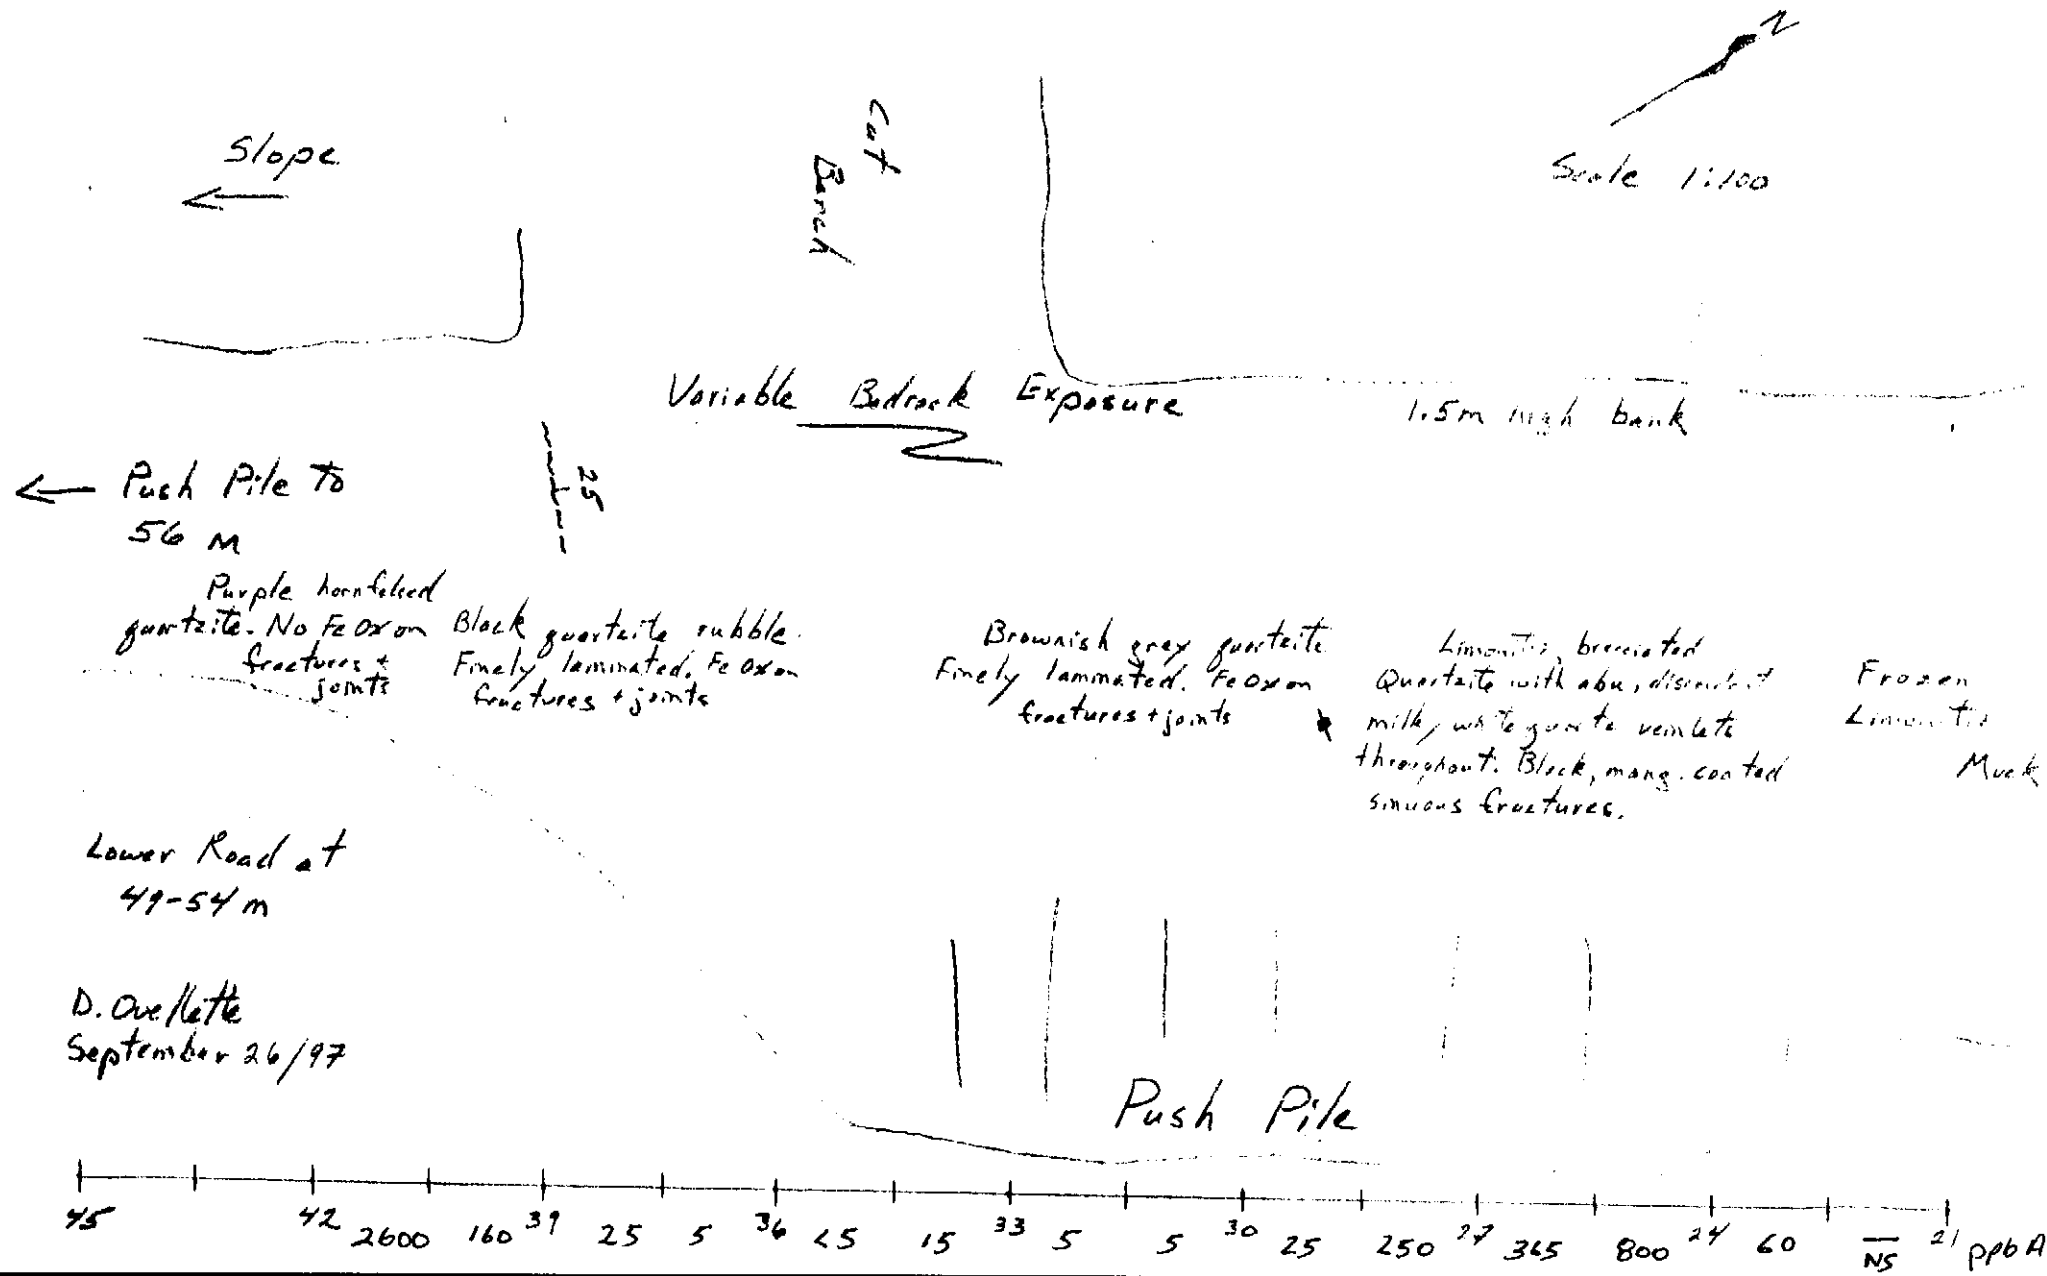 N
Scale 1:100
Slope
Cut
Bank
Variable Bedrock Exposure
1.5m high bank
Push Pile To
56 M
25
Purple hornfelsed
quartzite. No FeOx on
fractures +
joints
Black quartzite rubble.
Finely laminated. FeOx on
fractures + joints
Brownish grey quartzite
Finely laminated. FeOx on
fractures + joints
Limonitic, brecciated
Quartzite with abu, discordant
milky white quartz veinlets
throughout. Black, mang. coated
sinuous fractures.
Frozen
Limonitic
Muck
Lower Road at
49-54 m
D. Ouellette
September 26/97
Push Pile
45 42 39 36 33 30 27 24 21
2600 160 25 5 <5 15 5 5 25 250 365 800 60 NS ppb A